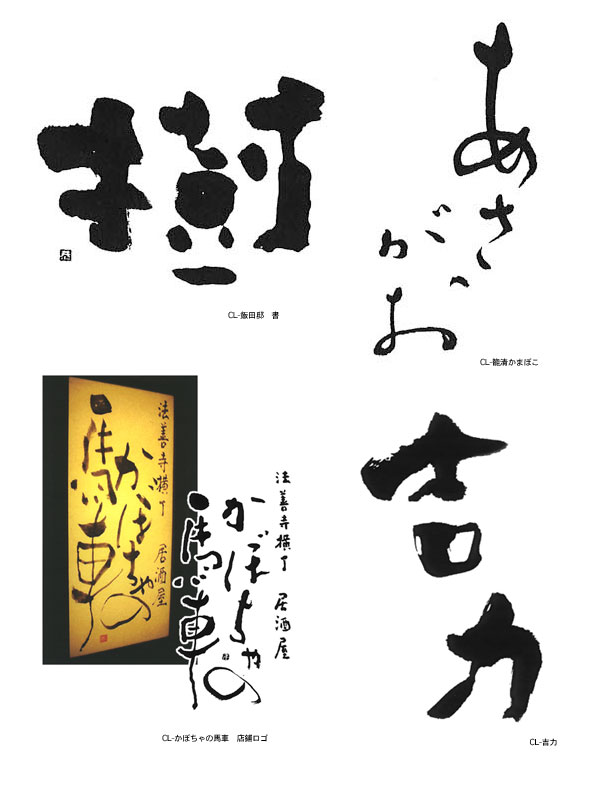 樹
CL-飯田邸　書
あさがお
CL-籠清かまぼこ
法善寺横丁　居酒屋
かぼちゃの
馬車
法善寺横丁　居酒屋
かぼちゃの
馬車
CL-かぼちゃの馬車　店舗ロゴ
吉力
CL-吉力